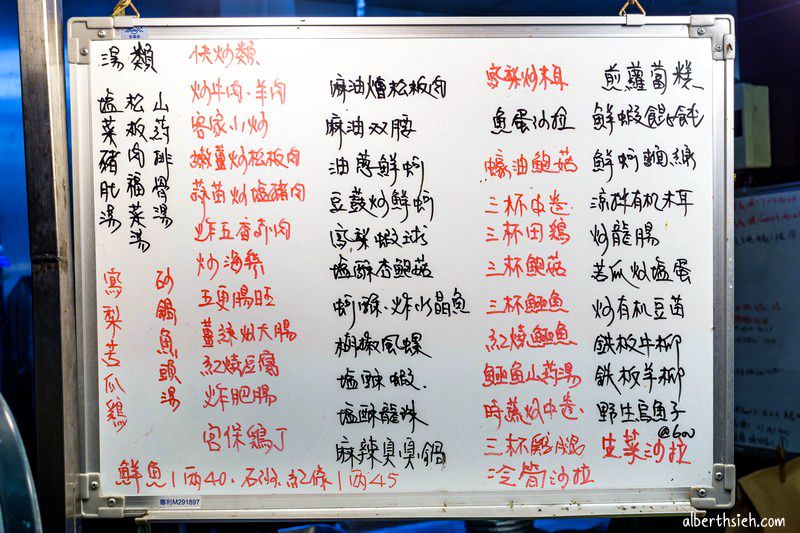 湯類
山藥排骨湯
松板肉福菜湯
塩菜豬肚湯
砂鍋魚頭湯
鳳梨苦瓜鷄
快炒類
炒牛肉·羊肉
客家小炒
嫩薑炒松板肉
蒜苗炒塩豬肉
炸五香前肉
炒海
五更腸旺
薑絲炒大腸
紅燒豆腐
炸肥腸
宮保鷄丁
麻油燴松板肉
麻油双腰
油蔥鮮蚵
豆鼓炒鮮蚵
鳳梨蝦球
塩酥杏鮑菇
蚵酥·炸水晶魚
胡椒風螺
塩酥蝦
塩酥龍珠
麻辣臭臭鍋
鳳梨炒木耳
魚蛋沙拉
蠔油鮑菇
三杯中卷
三杯田鷄
三杯鮑菇
三杯鱷魚
紅燒鱷魚
鱷魚山藥湯
時蔬炒中卷
三杯鷄腿
冷筍沙拉
煎蘿蔔糕
鮮蝦餛飩
鮮蚵麵線
涼拌有机木耳
炒龍腸
苦瓜炒塩蛋
炒有机豆苗
鉄板牛柳
鉄板羊柳
野生烏魚子
@600
生菜沙拉
鮮魚1兩40、石斑、紅條1兩45
專利M291897
alberthsieh.com